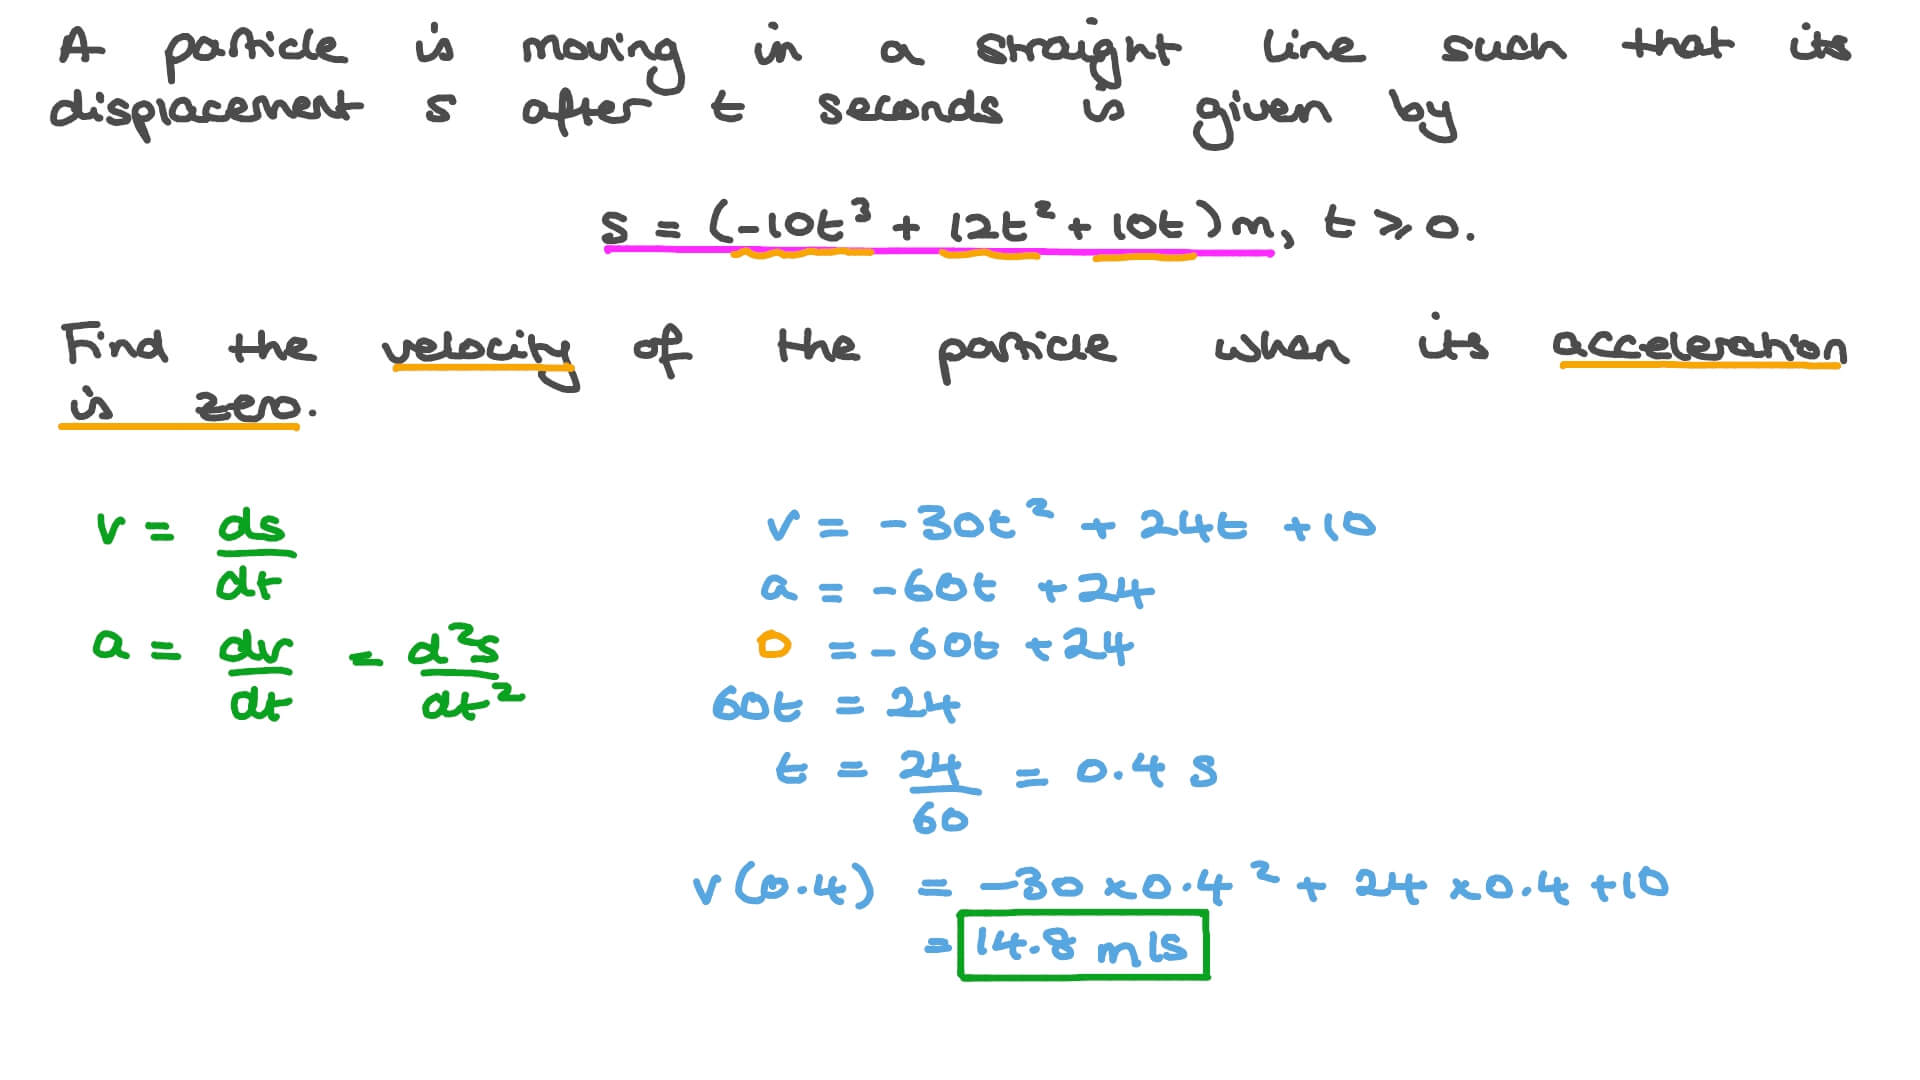 A particle is moving in a straight line such that its
displacement s after t seconds is given by
s = (-10t³ + 12t² + 10t)m, t ⩾ 0.
Find the velocity of the particle when its acceleration
is zero.
v = ds/dt
a = dv/dt = d²s/dt²
v = -30t² + 24t + 10
a = -60t + 24
0 = -60t + 24
60t = 24
t = 24/60 = 0.4 s
v(0.4) = -30 × 0.4² + 24 × 0.4 + 10
= 14.8 m/s